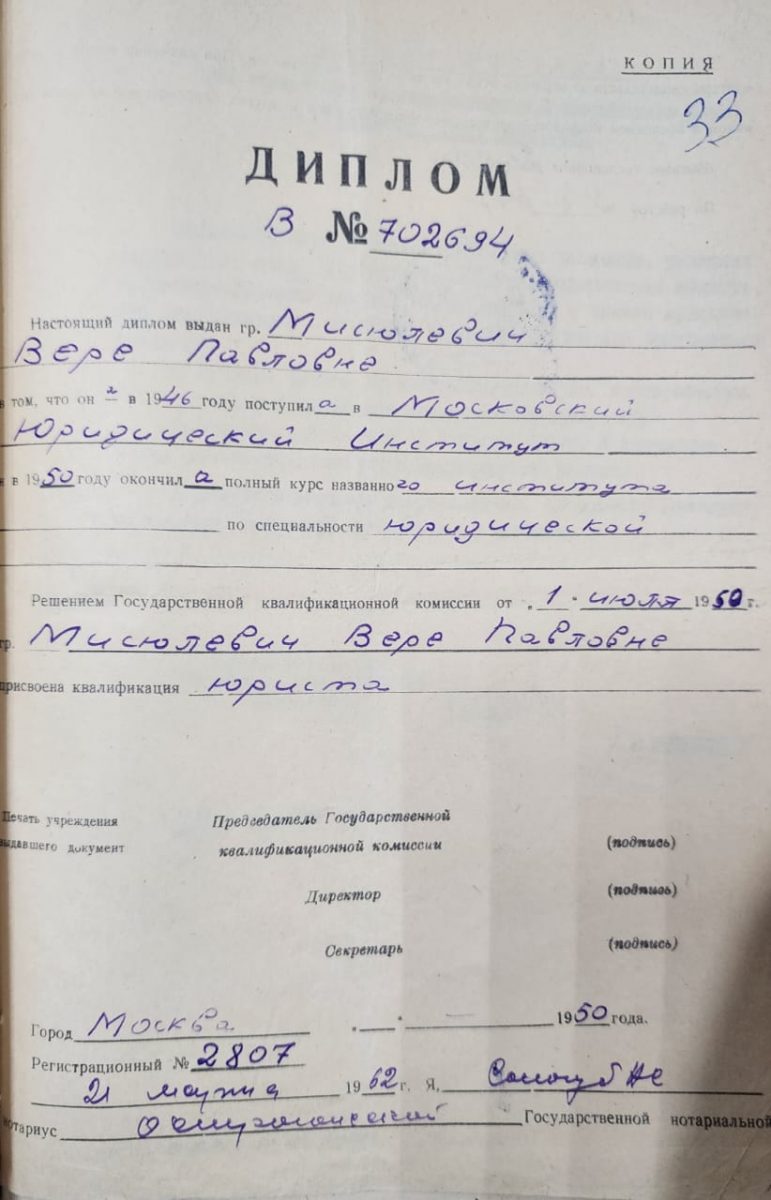 КОПИЯ
33
ДИПЛОМ
В № 702694
Настоящий диплом выдан гр. Мисюлевич
Вере Павловне
в том, что он а в 1946 году поступил а в Московский
Юридический Институт
и в 1950 году окончил а полный курс названного института
по специальности юридической
Решением Государственной квалификационной комиссии от „1" июля 1950 г.
гр. Мисюлевич Вере Павловне
присвоена квалификация юриста
Печать учреждения Председатель Государственной
выдавшего документ квалификационной комиссии (подпись)
Директор (подпись)
Секретарь (подпись)
Город Москва „ " 1950 года.
Регистрационный № 2807
21 марта 1962 г. Я,
нотариус Государственной нотариальной